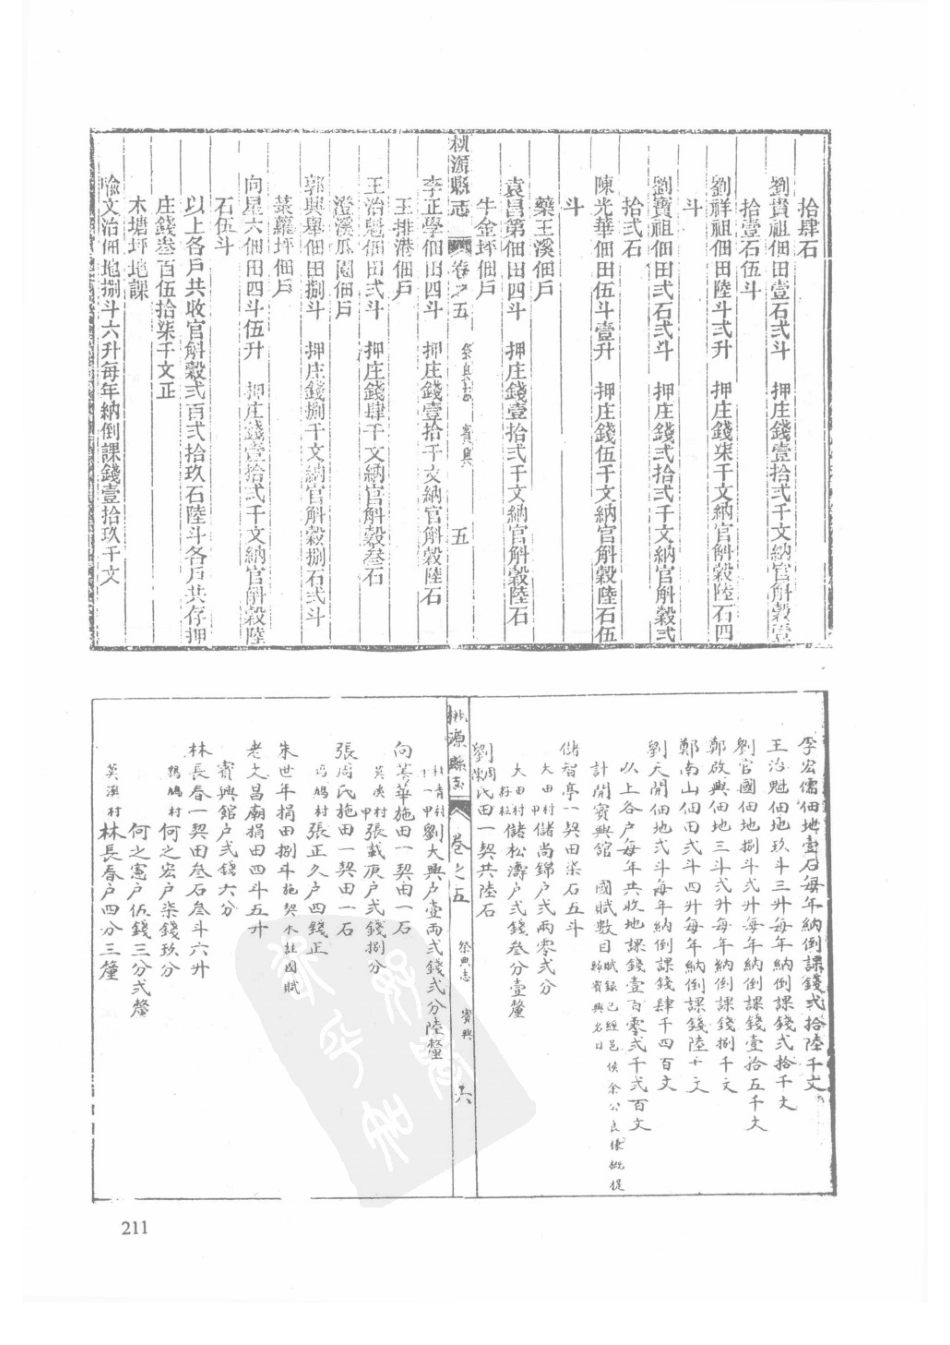 拾肆石
劉貴祖佃田壹石弍斗　押庄錢壹拾弍千文納官斛穀壹
拾壹石伍斗
劉祥祖佃田陸斗弍升　押庄錢柒千文納官斛穀陸石四
斗
劉寶祖佃田弍石弍斗　押庄錢弍拾弍千文納官斛穀弍
拾弍石
陳光華佃田伍斗壹升　押庄錢伍千文納官斛穀陸石伍
斗
藥王溪佃戶
袁昌第佃田四斗　押庄錢壹拾弍千文納官斛穀陸石
牛金坪佃戶
桃源縣志　卷之五　祭典志　賓興　五
李正學佃田四斗　押庄錢壹拾千文納官斛穀陸石
王排港佃戶
王治魁佃田弍斗　押庄錢肆千文納官斛穀叁石
澄溪瓜園佃戶
郭興舉佃田捌斗　押庄錢捌千文納官斛穀捌石弍斗
菜蘿坪佃戶
向星六佃田四斗伍升　押庄錢壹拾弍千文納官斛穀陸
石伍斗
以上各戶共收官斛穀弍百弍拾玖石陸斗各戶共存押
庄錢叁百伍拾柒千文正
木塘坪地課
喻文治佃地捌斗六升每年納倒課錢壹拾玖千文
李宏儒佃地壹石每年納倒課錢弍拾陸千文
王治魁佃地玖斗三升每年納倒課錢弍拾千文
劉官國佃地捌斗弍升每年納倒課錢壹拾五千文
鄭啟興佃地三斗弍升每年納倒課錢捌千文
鄭南山佃田弍斗四升每年納倒課錢陸千文
劉天開佃地弍斗每年納倒課錢肆千四百文
以上各户每年共收地課錢壹百零弍千弍百文
計開賓興館　國賦數目賦銀已經邑侯余公良棟概提歸賓興名目
儲智亭一契田柒石五斗
大田村甲儲尚錦户弍兩零弍分
大田村儲松濤户弍錢叁分壹釐
劉周陳氏田一契共陸石
桃源縣志　卷之五　祭典志　賓興　六
杜青村十一甲劉大興户壹兩弍錢弍分陸釐
向萬華施田一契田一石
莫溪村甲張載庚户弍錢捌分
張周氏施田一契田一石
鴣村張正久户四錢正
朱世年捐田捌斗施契未註國賦
老文昌廟捐田四斗五升
賓興館户弍錢六分
林長春一契田叁石叁斗六升
鴣村何之宏户柒錢玖分
何之憲户伍錢三分弍釐
莫溪村林長春户四分三釐
211